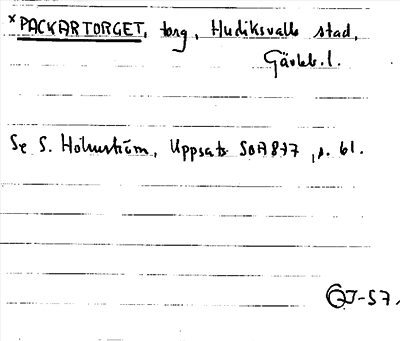 *PACKARTORGET, torg, Hudiksvalls stad,
Gävleb.l.
Se S. Holmström, Uppsats SOA 877, s. 61.
GJ-57.